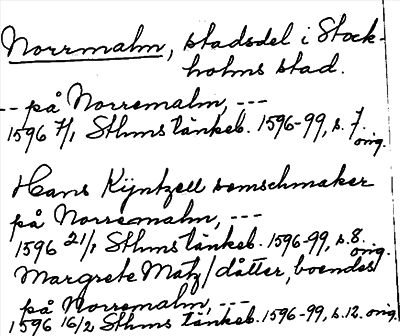 Norrmalm, stadsdel i Stock-
holms stad.
-- på Norremalm, ---
1596 7/1 Sthms tänkeb. 1596-99, s. 7.
orig.
Hans Kijntzell semschmaker
på Norremalm, ---
1596 21/1 Sthms tänkeb. 1596-99, s. 8.
orig.
Margrete Matz/dåtter, boendes
på Norremalm, ---
1596 16/2 Sthms tänkeb. 1596-99, s. 12. orig.